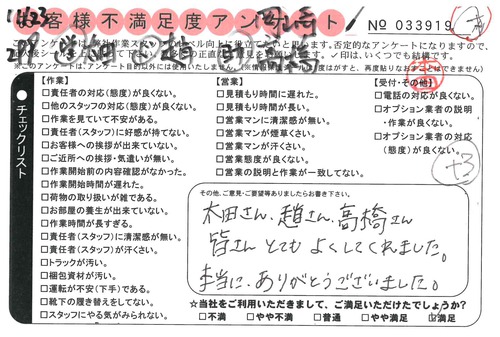 お客様不満足度アンケート
No 033919
【作業】
□責任者の対応(態度)が良くない。
□他のスタッフの対応(態度)が良くない。
□作業を見ていて不安がある。
□責任者(スタッフ)に好感が持てない。
□お客様への挨拶が出来ていない。
□ご近所への挨拶・気遣いが無い。
□作業開始前の内容確認がなかった。
□作業開始時間が遅れた。
□荷物の取り扱いが雑である。
□お部屋の養生が出来ていない。
□作業時間が長すぎる。
□責任者(スタッフ)に清潔感が無い。
□責任者(スタッフ)が汗くさい。
□トラックが汚い。
□梱包資材が汚い。
□運転が不安(下手)である。
□靴下の履き替えをしてない。
□スタッフにやる気がみられない。
【営業】
□見積もり時間に遅れた。
□見積もり時間が長い。
□営業マンに清潔感が無い。
□営業マンが煙草くさい。
□営業マンが汗くさい。
□営業態度が良くない。
□営業の説明と作業が一致してない。
【受付・その他】
□電話の対応が良くない。
□オプション業者の説明
・作業が良くない。
□オプション業者の対応
(態度)が良くない。
チェックリスト
その他、ご意見・ご要望等ありましたらお書き下さい。
太田さん、趙さん、高橋さん
皆さんとてもよくしてくれました。
本当に、ありがとうございました。
☆当社をご利用いただきまして、ご満足いただけたでしょうか?
□不満 □やや不満 □普通 □やや満足 ☑満足